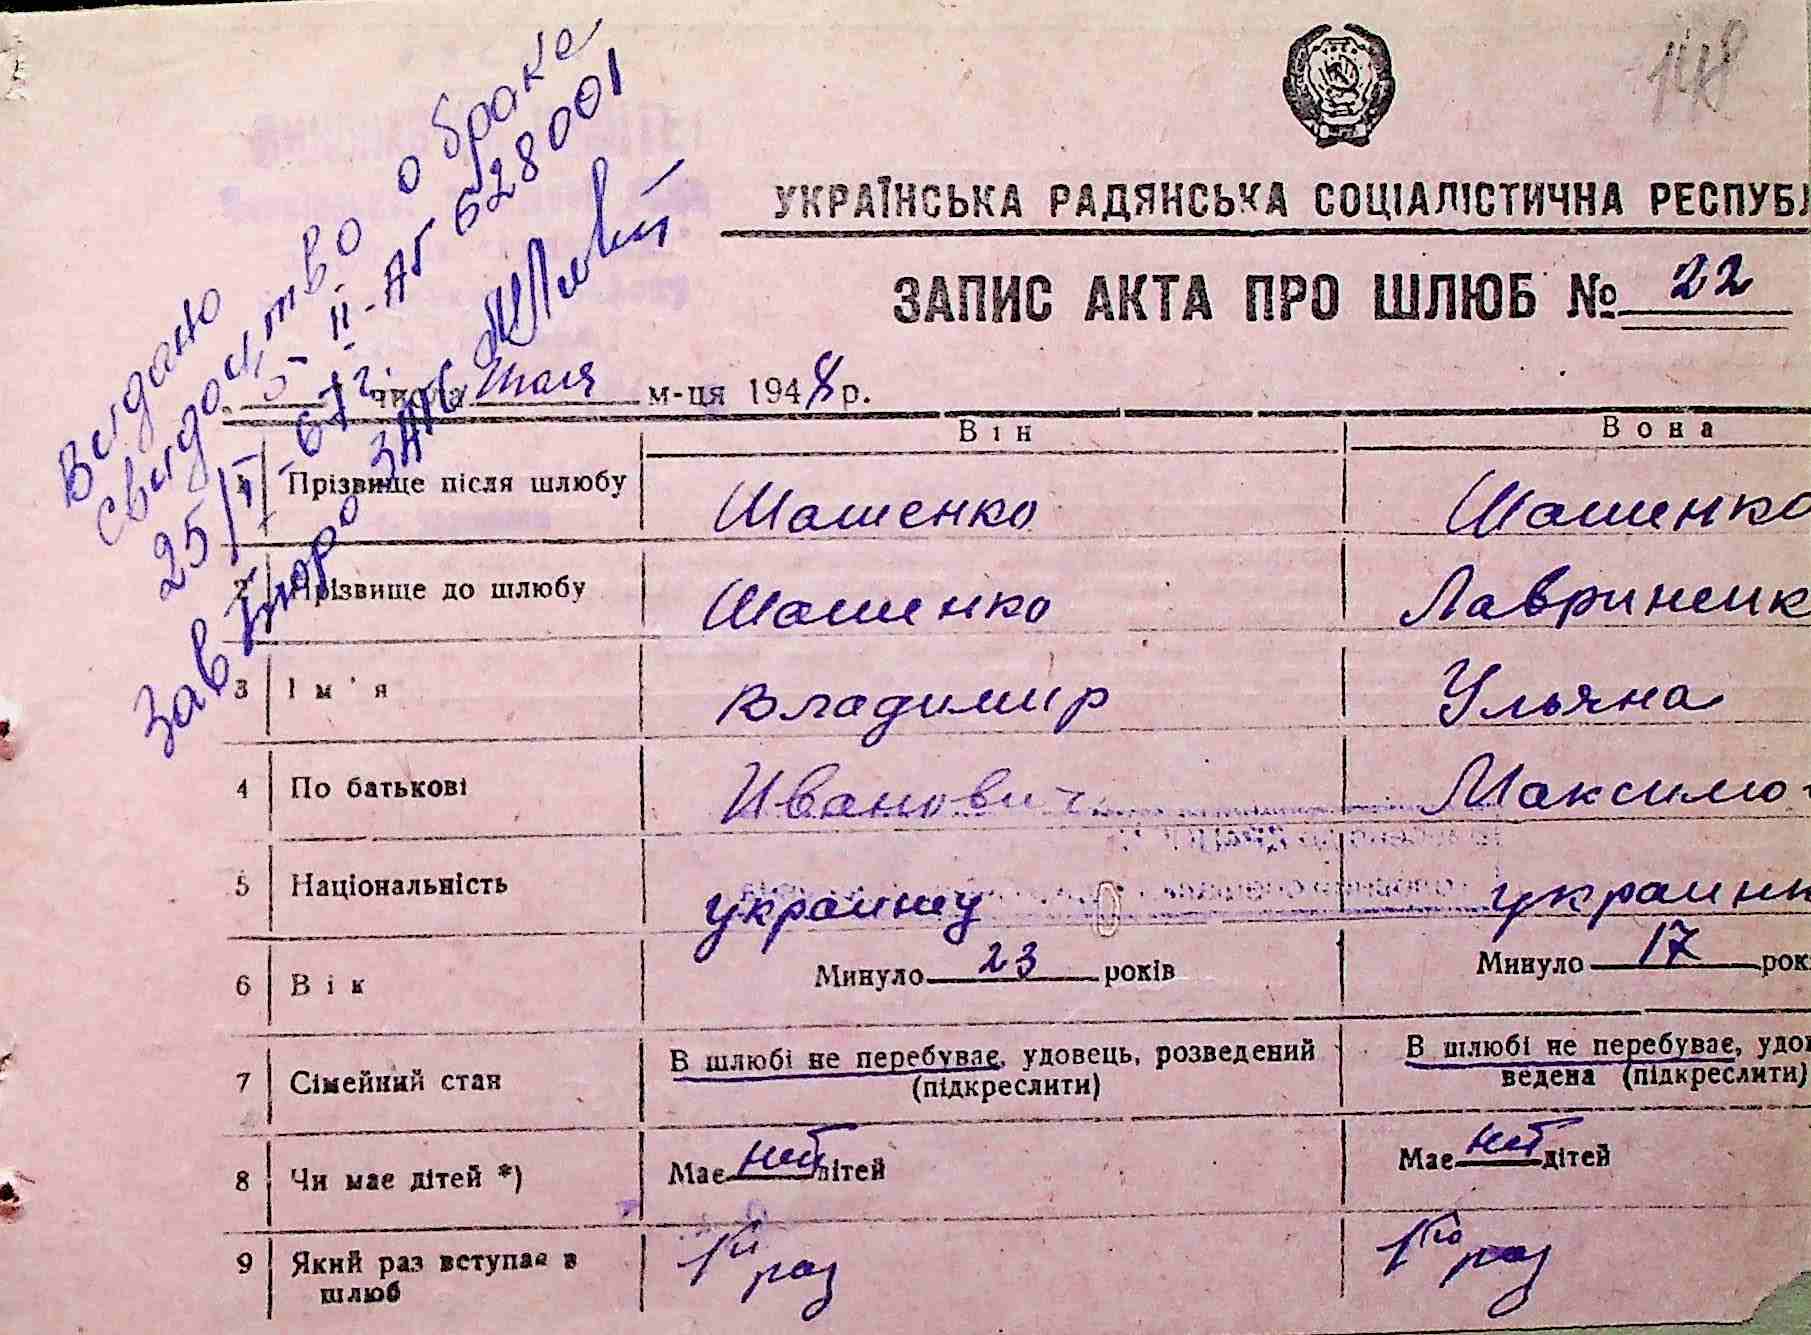 148
УКРАЇНСЬКА РАДЯНСЬКА СОЦІАЛІСТИЧНА РЕСПУБЛ
ЗАПИС АКТА ПРО ШЛЮБ № 22
Выдано
свидоцтво о браке
II-АБ 628001
25/I-67г.
Зав бюро ЗАГС
5 числа мая м-ця 1948 р.
Він Вона
1 Прізвище після шлюбу Шашенко Шашенко
2 Прізвище до шлюбу Шашенко Лавриненк
3 Ім'я Владимир Ульяна
4 По батькові Иванович Максимо
5 Національність украинец украинк
6 Вік Минуло 23 років Минуло 17 рок
7 Сімейний стан В шлюбі не перебуває, удовець, розведений (підкреслити) В шлюбі не перебуває, удов
ведена (підкреслити)
8 Чи має дітей *) Має нет дітей Має нет дітей
9 Який раз вступає в шлюб 1й раз 1й раз